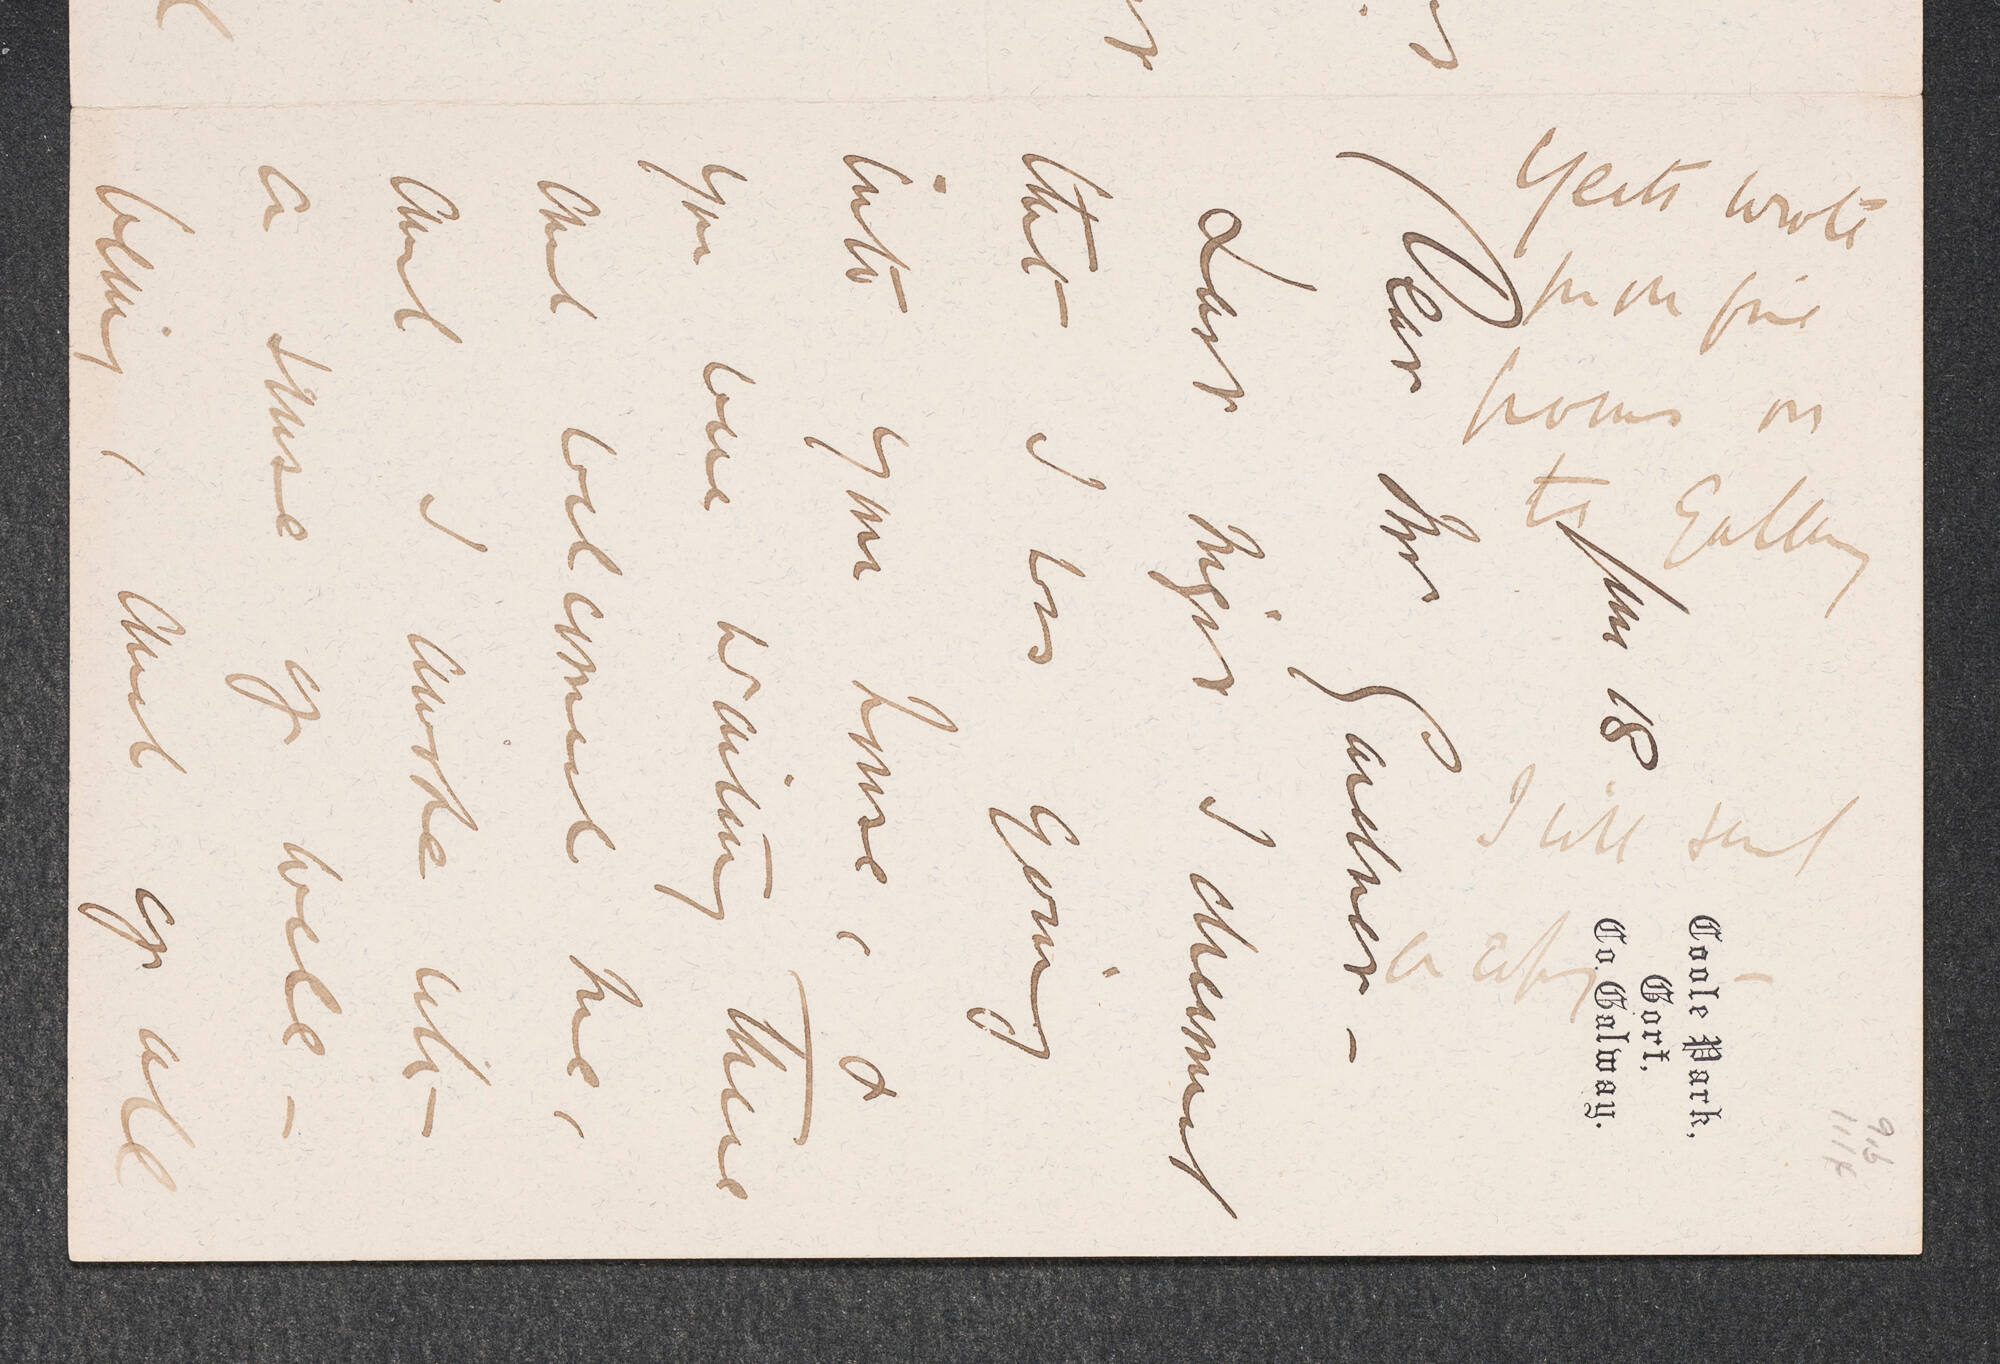 Yeats wrote
me five
poems on
the Gallery
I will send
a copy
Coole Park,
Gort,
Co. Galway.
Jan 18
Dear Mrs Gardner –
Last night I dreamed
that I was going
into your house, &
you were waiting there
and welcomed me,
and I awoke with
a sense of well –
being, and of all